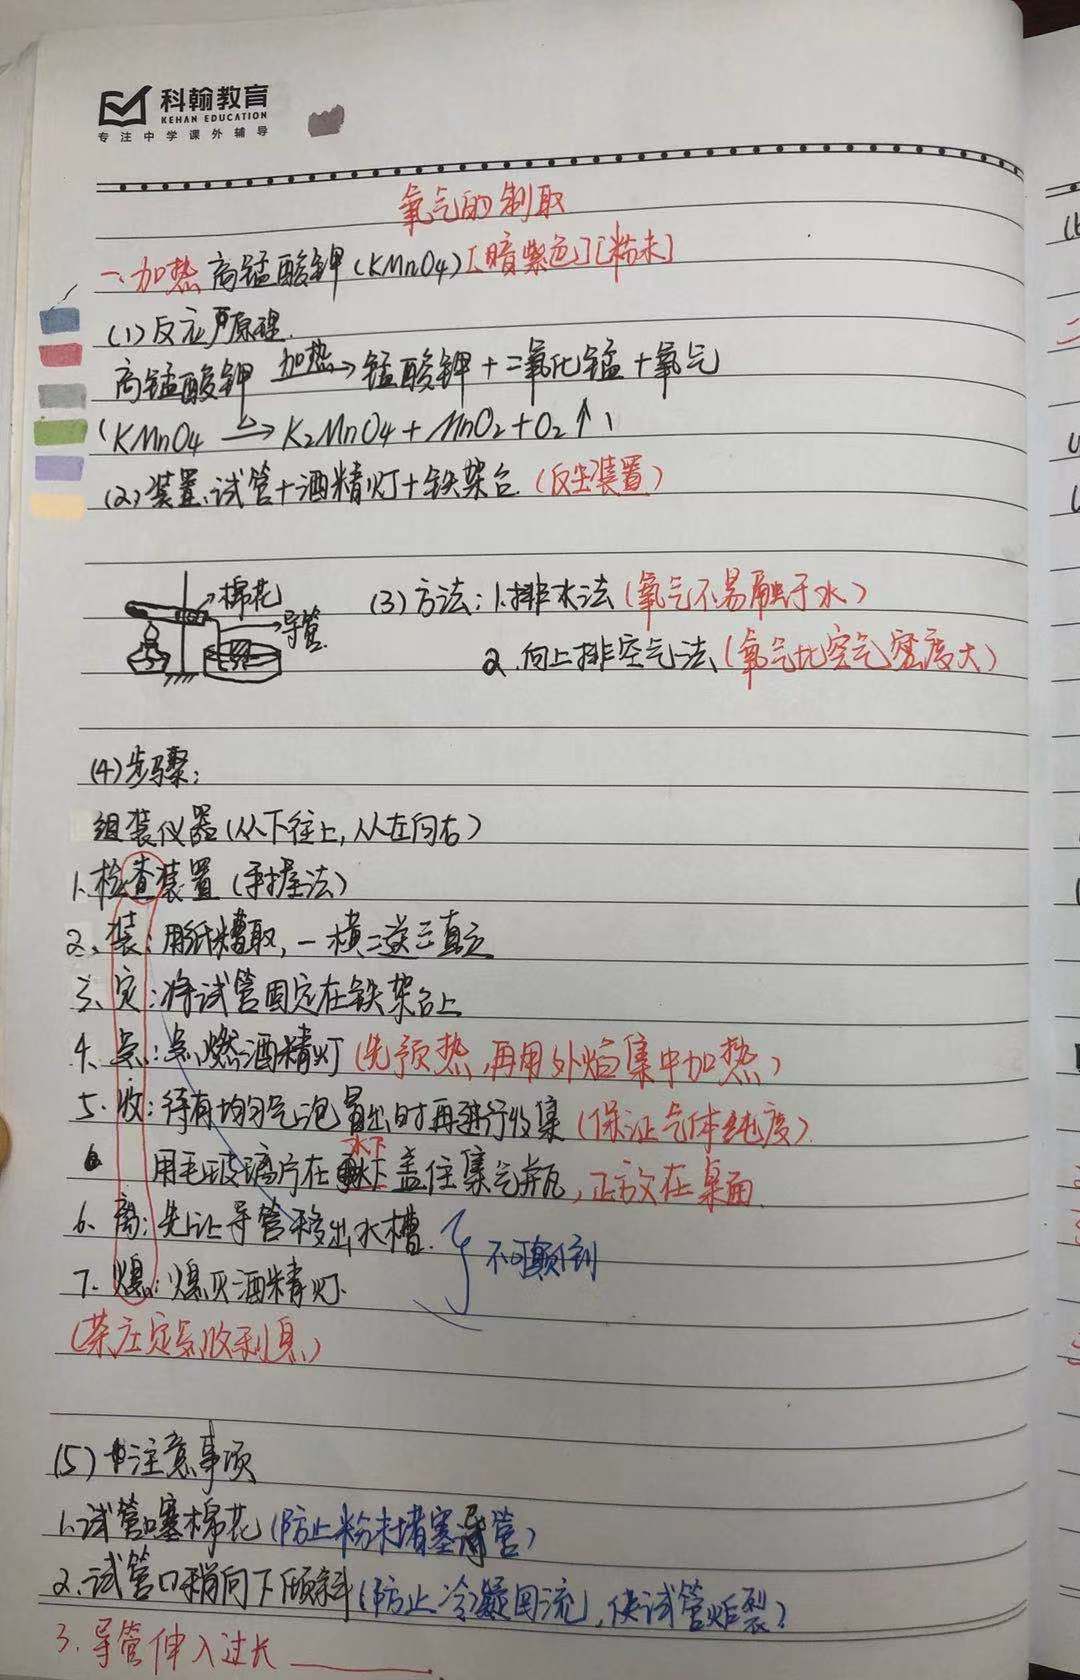 科翰教育
KEHAN EDUCATION
专注中学课外辅导
氧气的制取
一、加热高锰酸钾(KMnO4)[暗紫色][粉末]
(1)反应原理.
高锰酸钾 加热→ 锰酸钾+二氧化锰+氧气
(KMnO4 △→ K2MnO4+MnO2+O2↑)
(2)装置:试管+酒精灯+铁架台(反应装置)
棉花
导管
(3)方法:1.排水法(氧气不易融于水)
2.向上排空气法(氧气比空气密度大)
(4)步骤:
组装仪器(从下往上,从左向右)
1.检查装置(手握法)
2、装:用纸槽取,一横二送三直立
3、定:将试管固定在铁架台上
4、点:点燃酒精灯(先预热,再用外焰集中加热)
5.收:待有均匀气泡冒出时再进行收集(保证气体纯度)
用毛玻璃片在水下盖住集气瓶,正放在桌面
6、离:先让导管移出水槽.
不可颠倒
7.熄:熄灭酒精灯.
(茶庄定点收利息)
(5)注意事项
1.试管口塞棉花(防止粉末堵塞导管)
2.试管口稍向下倾斜(防止冷凝回流,使试管炸裂)
3.导管伸入过长